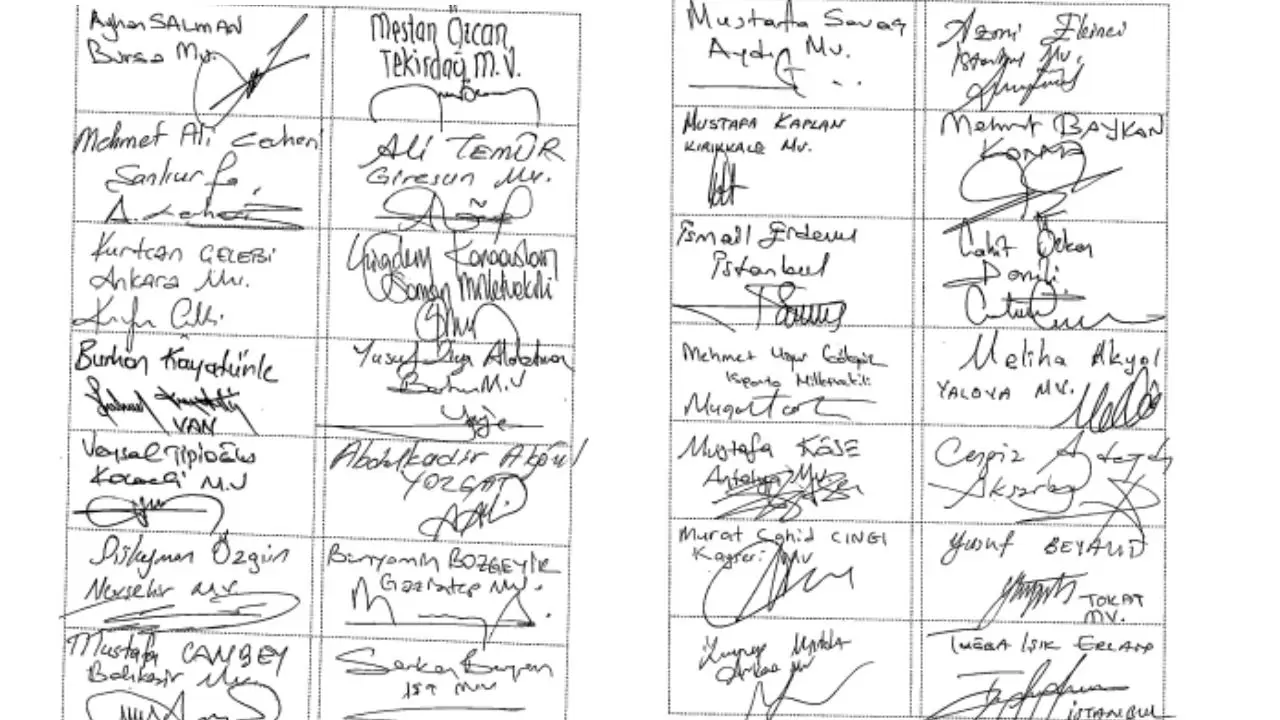 Ayhan SALMAN
Bursa Mv.
Mestan Özcan
Tekirdağ M.V.
Mehmet Ali Cevheri
Şanlıurfa
Ali TEMÜR
Giresun Mv.
Kurtcan ÇELEBİ
Ankara Mv.
Çiğdem Karaaslan
Samsun Milletvekili
Burhan Kayatürk
VAN
Yusuf Ziya Aldatmaz
Bartın M.V
Veysal Tipioğlu
Kocaeli M.V
Abdulkadir Akgül
YOZGAT
Süleyman Özgün
Nevşehir M.V.
Bünyamin BOZGEYİK
Gaziantep Mv.
Mustafa CANBEY
Balıkesir Mv.
Serkan Bayram
İST M.V
Mustafa Savaş
Aydın Mv.
Azmi Ekinci
İstanbul Mv.
MUSTAFA KAPLAN
KIRIKKALE Mv.
Mehmet BAYKAN
KONYA
İsmail Erdem
İstanbul
Cahit Özkan
Denizli
Mehmet Uğur Gökgöz
Isparta Milletvekili
Meliha Akyol
YALOVA MV.
Mustafa KÖSE
Antalya Mv.
Cengiz Aydoğdu
Aksaray
Murat Cahid CINGI
Kayseri Mv
Yusuf BEYAZIT
TOKAT
MV.
TUĞBA IŞIK ERCAN
İSTANBUL